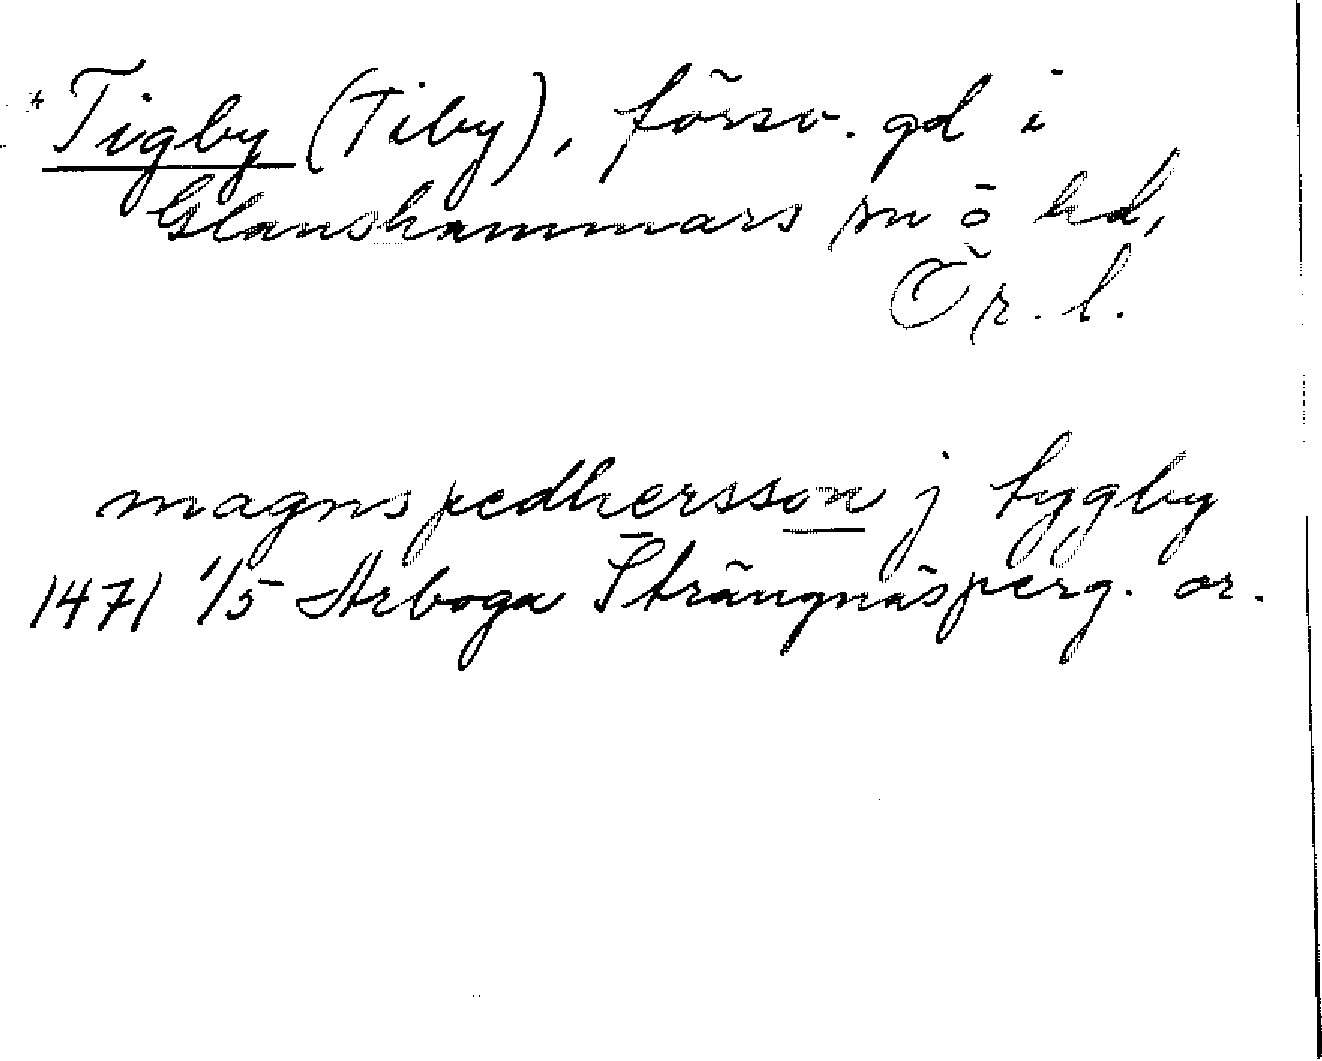 *Tigby (Tiby), försv. gd i
Glanshammars sn o hd,
Ör. l.
magns pedhersson j tygby
1471 1/5 Arboga Strängnäs perg. or.